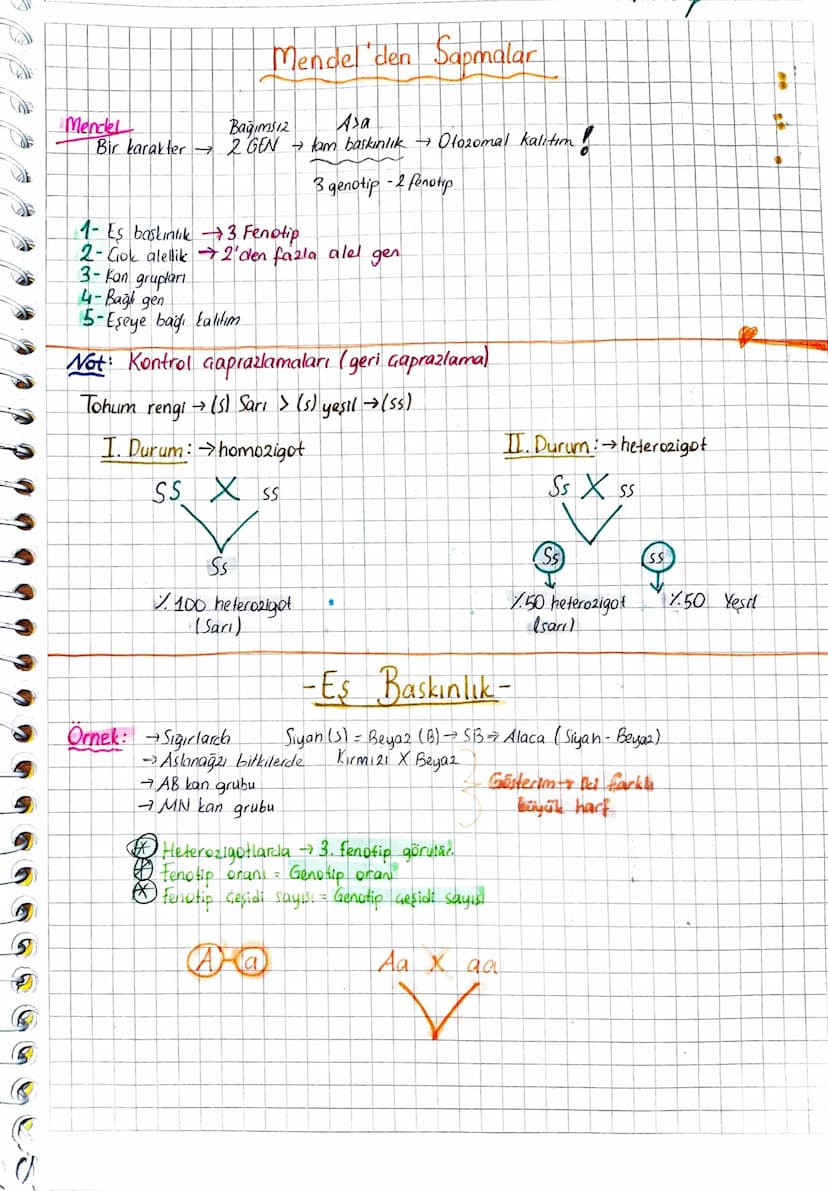 Mendel'den Sapmalar
Mendel
Bağımsız A>a
Bir karakter → 2 GEN → tam baskınlık → Otozomal kalıtım!
3 genotip - 2 fenotip
1- Eş baskınlık → 3 Fenotip
2- Çok alellik → 2'den fazla alel gen
3- Kan grupları
4- Bağlı gen
5- Eşeye bağlı kalıtım
Not: Kontrol çaprazlamaları (geri çaprazlama)
Tohum rengi → (S) Sarı > (s) yeşil → (ss)
I. Durum: → homozigot
II. Durum: → heterozigot
SS X ss
Ss X ss
Ss
Ss ss
% 100 heterozigot
(Sarı)
%50 heterozigot
(sarı)
%50 Yeşil
-Eş Baskınlık-
Örnek: → Sığırlarda Siyah (S) = Beyaz (B) → SB → Alaca (Siyah - Beyaz)
→ Aslanağzı bitkilerde Kırmızı X Beyaz
→ AB kan grubu
→ MN kan grubu
Gösterim → İki farklı
büyük harf
* Heterozigotlarda → 3. fenotip görülür.
* Fenotip oranı = Genotip oranı
* Fenotip çeşidi sayısı = Genotip çeşidi sayısı
A-a
Aa X aa